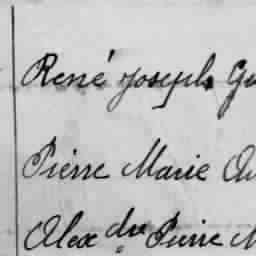 René Joseph
Pierre Marie
Alexdre Pierre